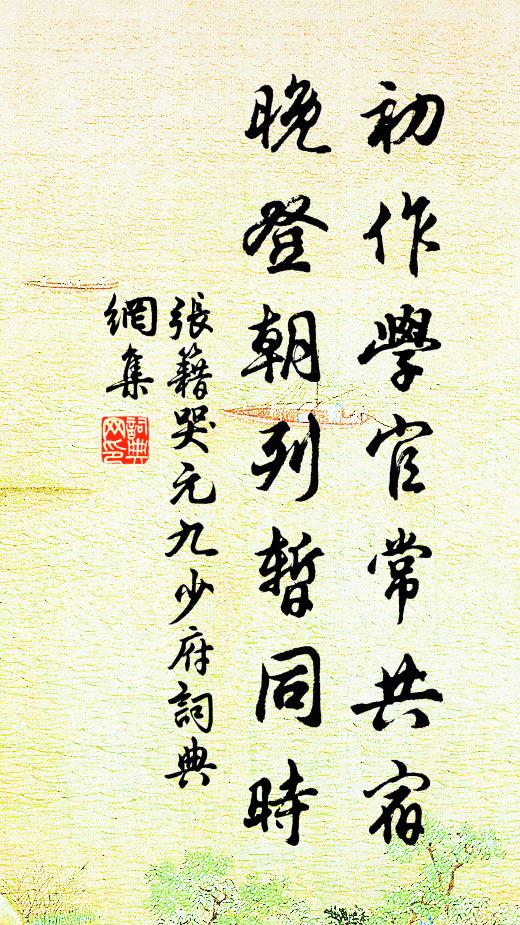 初作學官常共宿
晚登朝列暫同時
張籍哭元九少府詞典
網集
詞典
网印